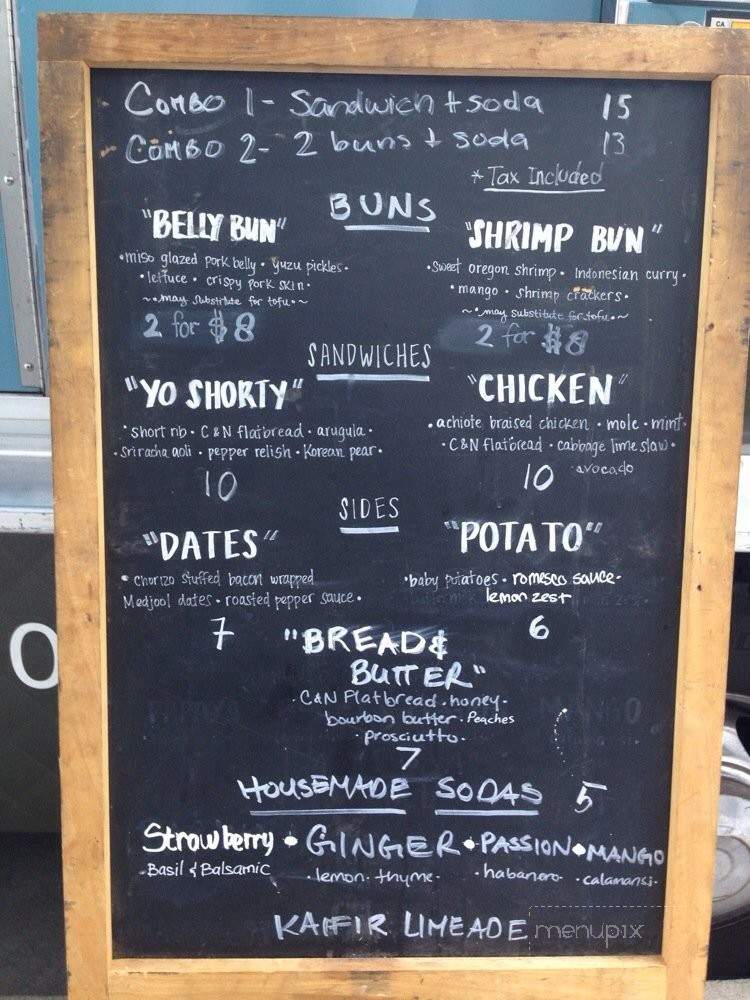 CA
COMBO 1 - Sandwich + soda 15
COMBO 2 - 2 buns + soda 13
* Tax Included
BUNS
"BELLY BUN"
•miso glazed pork belly • yuzu pickles•
•lettuce • crispy pork skin•
~•may substitute for tofu•~
2 for $8
"SHRIMP BUN"
•sweet oregon shrimp • Indonesian curry•
•mango • shrimp crackers•
~•may substitute for tofu•~
2 for $8
SANDWICHES
"YO SHORTY"
•short rib • C&N flatbread • arugula•
•Sriracha aoli • pepper relish • Korean pear•
10
"CHICKEN"
•achiote braised chicken • mole • mint•
•C&N flatbread • cabbage lime slaw•
•avocado
10
SIDES
"DATES"
• chorizo stuffed bacon wrapped
Medjool dates • roasted pepper sauce•
7
"POTATO"
•baby potatoes • romesco sauce•
lemon zest
6
"BREAD &
BUTTER"
•C&N Flatbread • honey•
bourbon butter • Peaches
•prosciutto•
7
HOUSEMADE SODAS 5
Strawberry • GINGER • PASSION • MANGO
•Basil & Balsamic •lemon • thyme• •habanero• •calamansi•
KAFFIR LIMEADE
menupix
O